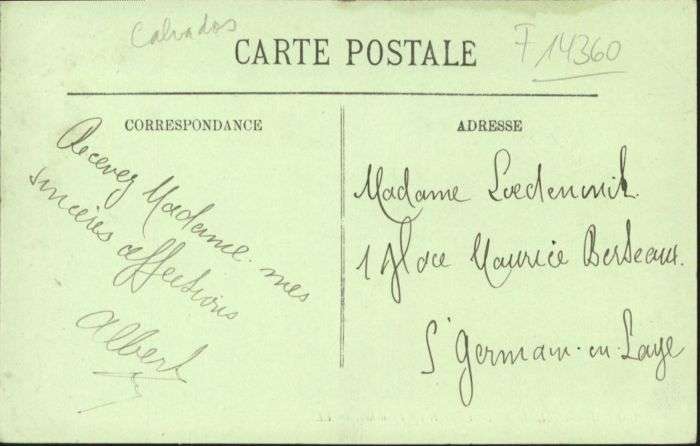 Calvados
F 14360
CARTE POSTALE
CORRESPONDANCE
Recevez Madame mes
sincères affections
Albert
ADRESSE
Madame
1 place Maurice Berteaux.
St Germain-en-Laye